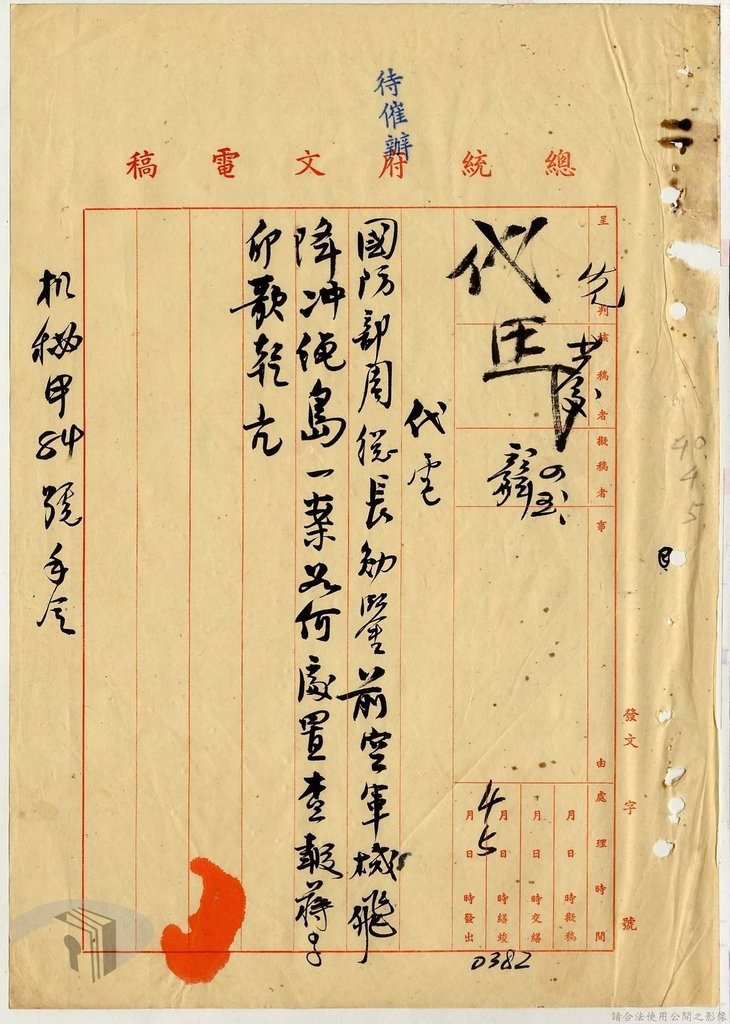 待催辦
總統府文電稿
呈判
核稿者
擬稿者
事由
處理時間
月日時擬稿
月日時交繕
月日時繕竣
月日時發出
4 5
發文 字 號
代電
國防部周總長勛鑒前空軍機飛
降沖繩島一案如何處置查報蔣
卯歌乾
机秘甲84號手令
40.
4.
5
0382
請合法使用公開之影像